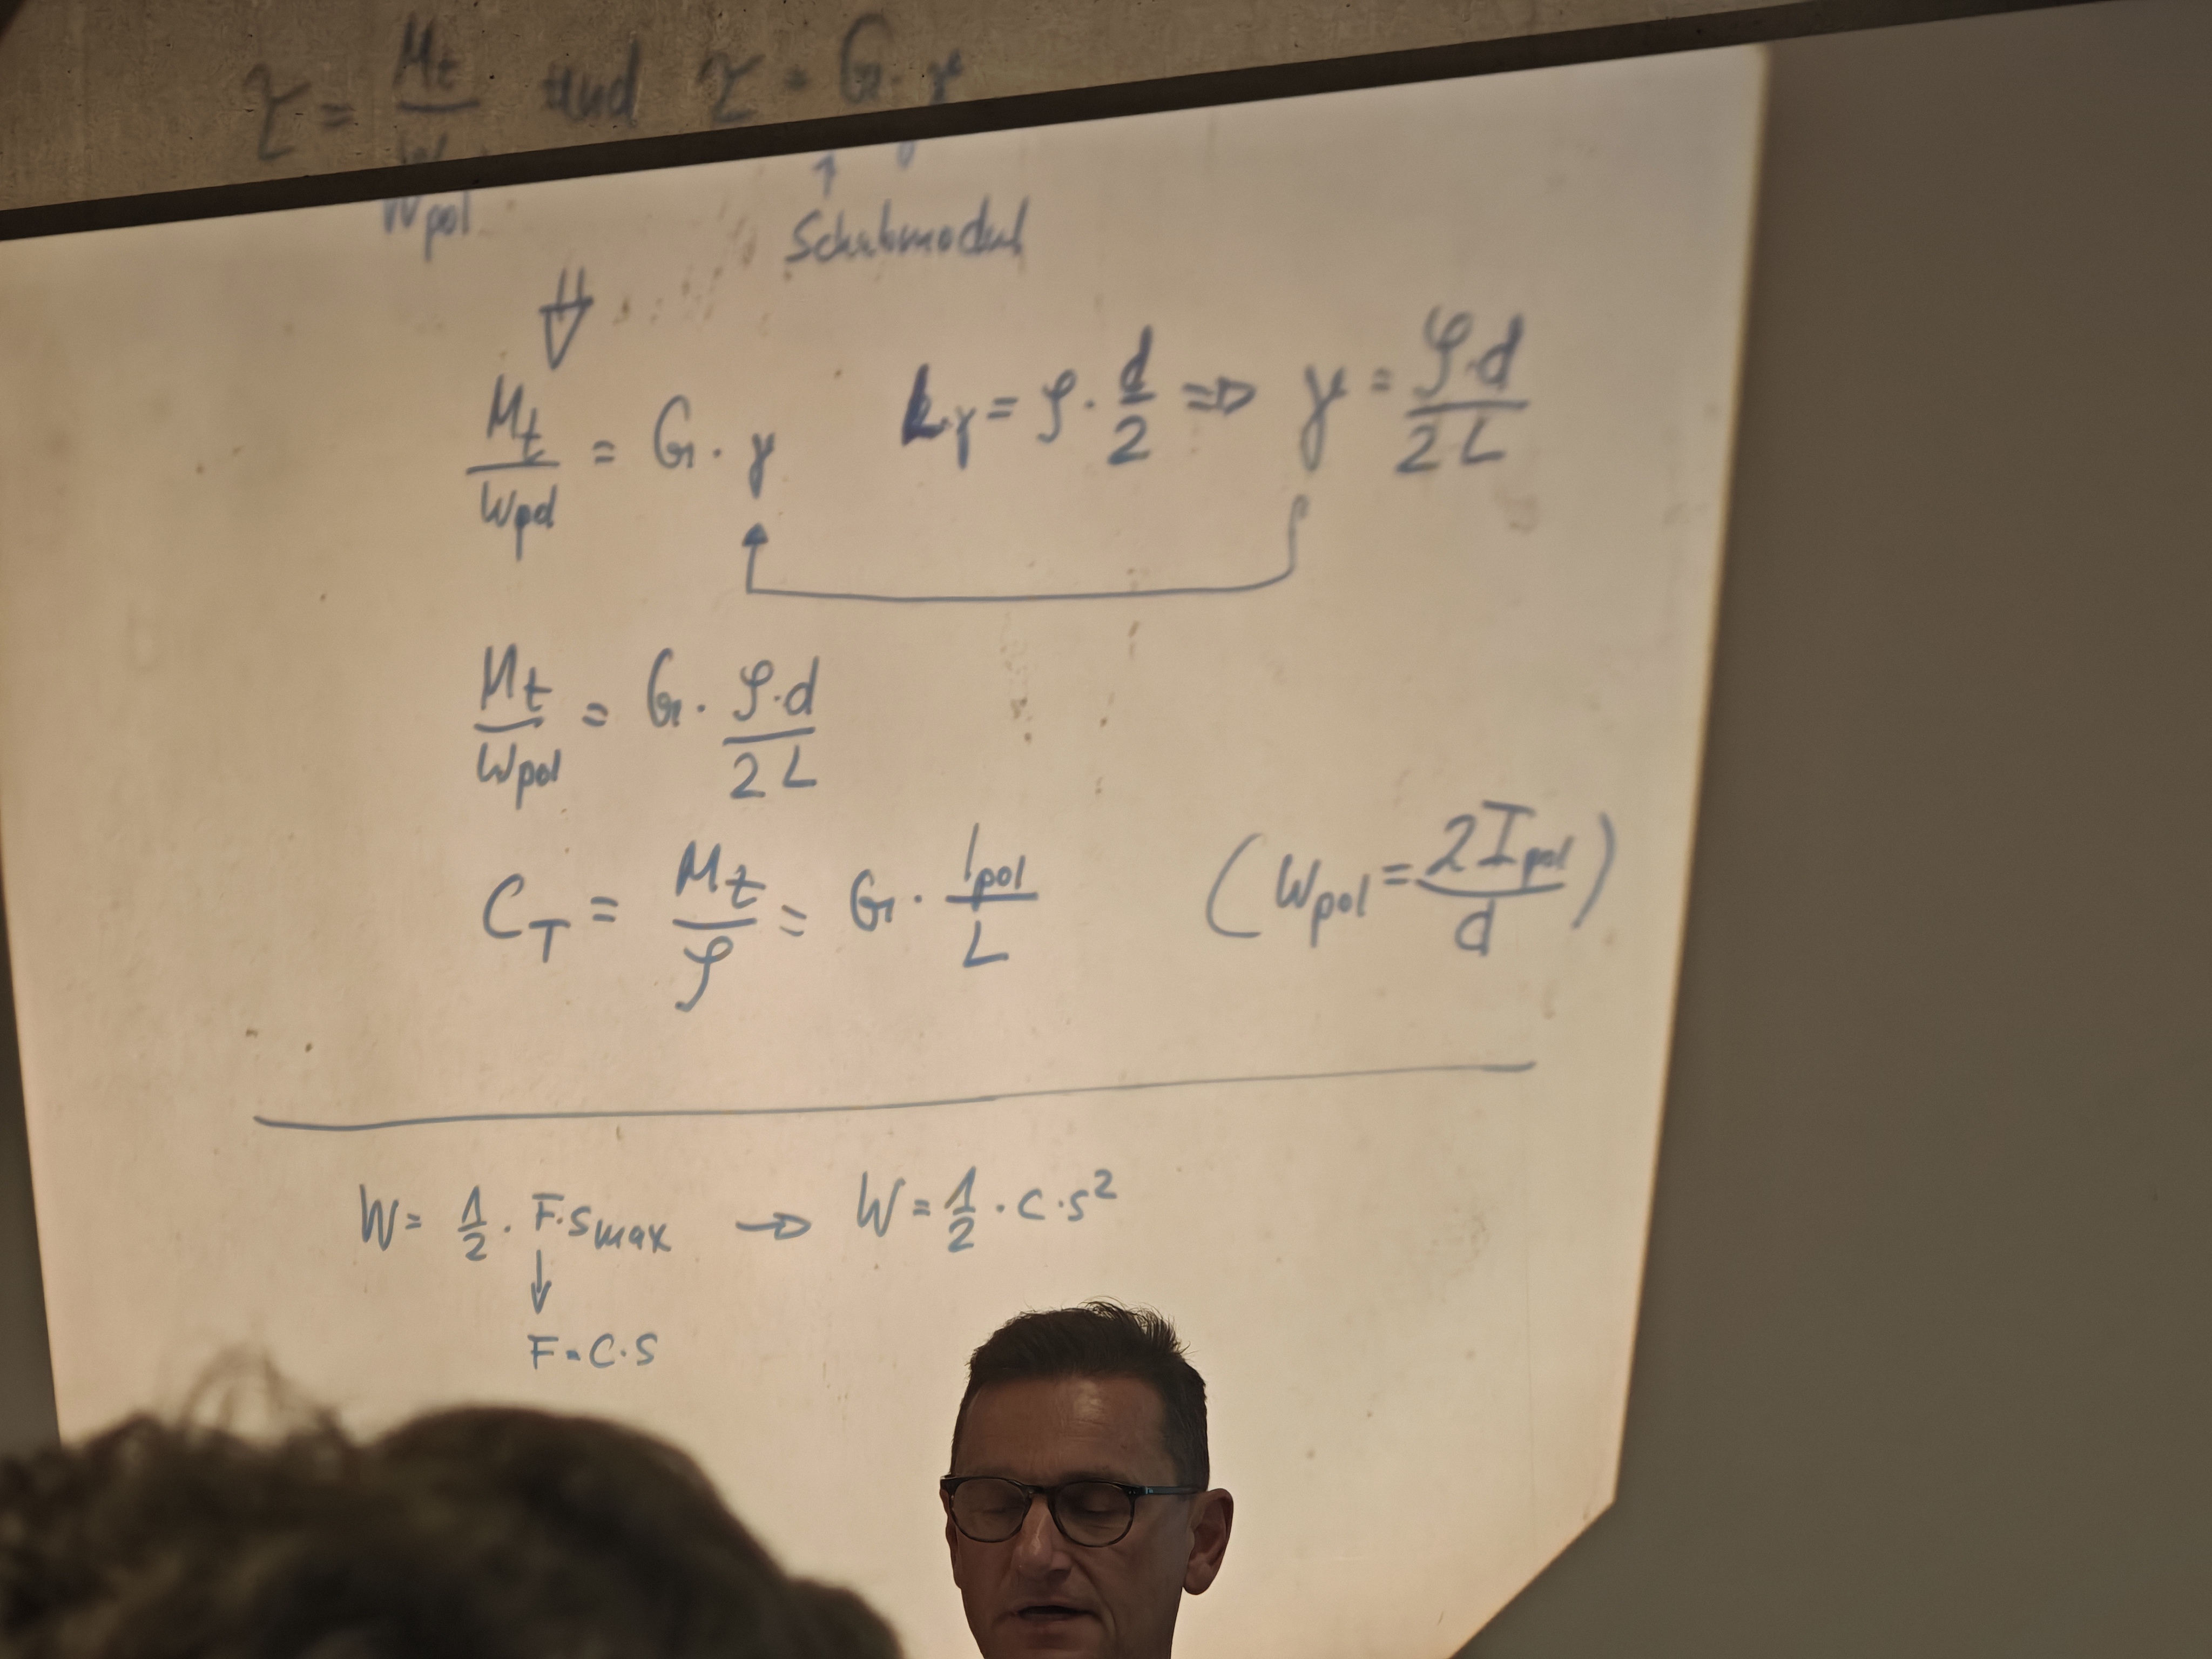 τ = Mt/Wpol und τ = G · γ
↑
Schubmodul
⇓
Mt/Wpol = G · γ   L·γ = φ · d/2 ⇒ γ = φ·d/2L
Mt/Wpol = G · φ·d/2L
CT = Mt/φ = G · Ipol/L   (Wpol = 2Ipol/d)
W = 1/2 · F·smax → W = 1/2 · c · s²
↓
F = C · s